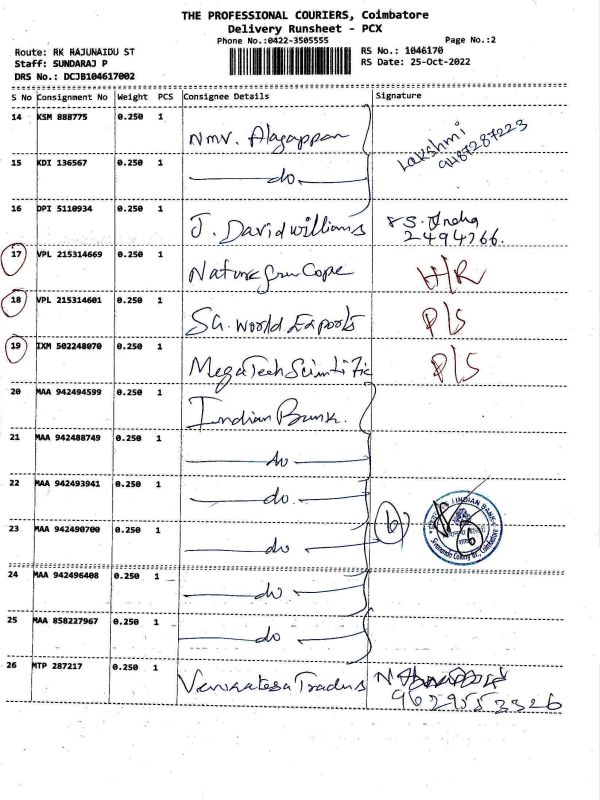 THE PROFESSIONAL COURIERS, Coimbatore
Delivery Runsheet - PCX
Phone No.:0422-3505555 Page No.:2
Route: RK RAJUNAIDU ST RS No.: 1046170
Staff: SUNDARAJ P RS Date: 25-Oct-2022
DRS No.: DCJB104617002
S No Consignment No Weight PCS Consignee Details Signature
14 KSM 888775 0.250 1 Nmv. Alagappan Lakshmi
9487287223
15 KDI 136567 0.250 1 do
16 DPI 5110934 0.250 1 J. Davidwilliams
2494766.
17 VPL 215314669 0.250 1 H/R
18 VPL 215314601 0.250 1 SG. World Exports P/S
19 IXM 502248070 0.250 1 MegaTech Scientific P/S
20 MAA 942494599 0.250 1 Indian Bank.
21 MAA 942488749 0.250 1 do
22 MAA 942493941 0.250 1 do.
23 MAA 942490700 0.250 1 do (6) INDIAN BANK
24 MAA 942496408 0.250 1 do
25 MAA 858227967 0.250 1 do
26 MTP 287217 0.250 1 Venkatesa Traders
9629553326